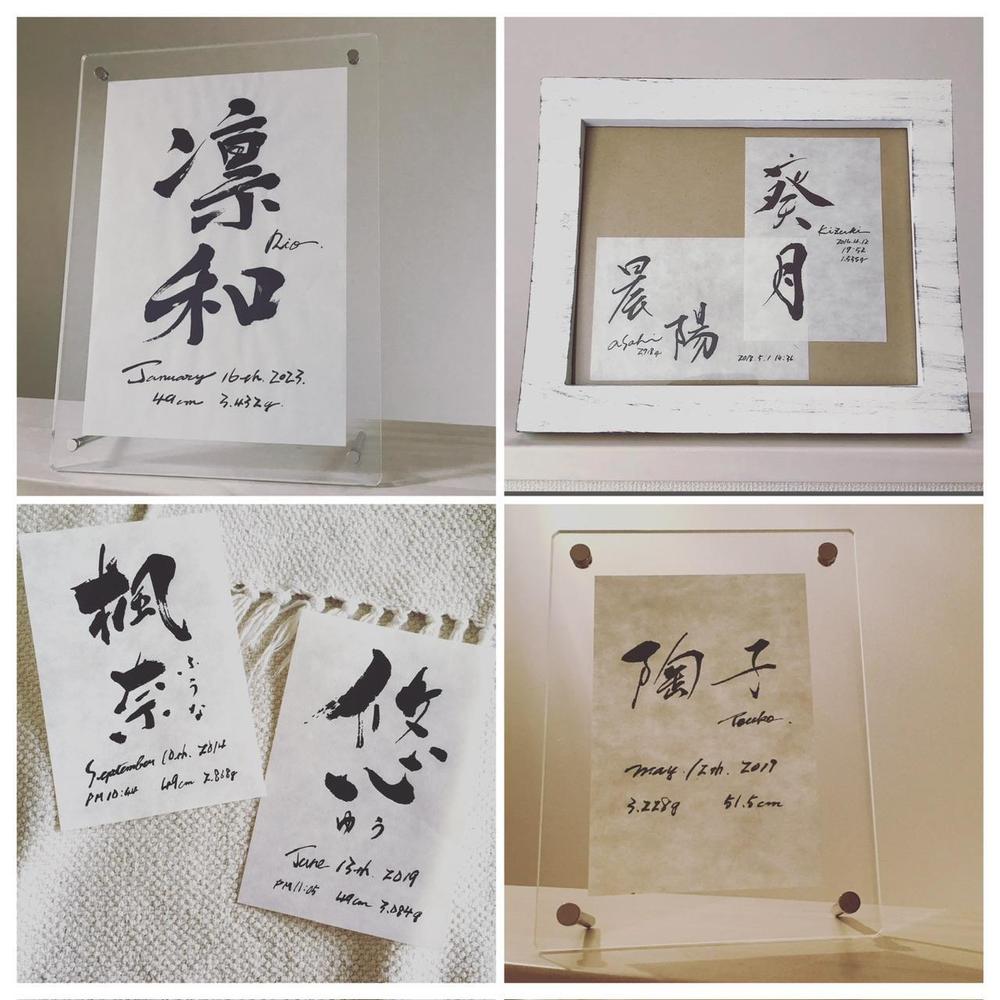 凛
Rio.
和
January 16th. 2023.
49cm 3.432g.
葵
Kizuki
2016.4.12
17:52
月
晨
陽
asahi
2918g
2018.5.1 14:36
楓
奈
ふうな
September 10th. 2014
PM10:44 49cm 2.868g
悠
ゆう
June 13th. 2019
PM11:05 49cm 3.084g
陶子
Touko.
may 12th. 2019
3.228g 51.5cm